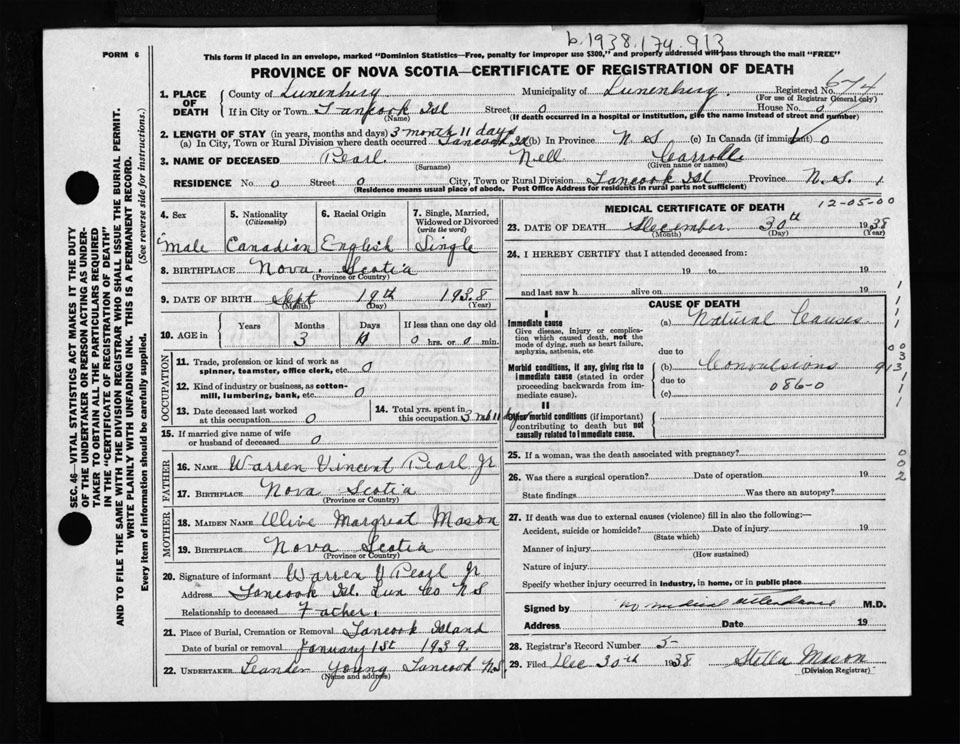 b. 1938.174 913
FORM 6
This form if placed in an envelope, marked "Dominion Statistics—Free, penalty for improper use $300," and properly addressed will pass through the mail "FREE"
PROVINCE OF NOVA SCOTIA—CERTIFICATE OF REGISTRATION OF DEATH
SEC. 46—VITAL STATISTICS ACT MAKES IT THE DUTY
OF THE UNDERTAKER OR PERSON ACTING AS UNDER-
TAKER TO OBTAIN ALL THE PARTICULARS REQUIRED
IN THE "CERTIFICATE OF REGISTRATION OF DEATH"
AND TO FILE THE SAME WITH THE DIVISION REGISTRAR WHO SHALL ISSUE THE BURIAL PERMIT.
WRITE PLAINLY WITH UNFADING INK. THIS IS A PERMANENT RECORD.
Every item of information should be carefully supplied. (See reverse side for instructions.)
1. PLACE OF DEATH County of Lunenburg Municipality of Lunenburg Registered No. 674
(For use of Registrar General only)
If in City or Town Tancook Isl Street 0 House No. 0
(Name) (If death occurred in a hospital or institution, give the name instead of street and number)
2. LENGTH OF STAY (in years, months and days) 3 month 11 days
(a) In City, Town or Rural Division where death occurred Tancook Isl (b) In Province N S (c) In Canada (if immigrant) 0
3. NAME OF DECEASED Pearl Nell Carroll
(Surname) (Given name or names)
RESIDENCE No. 0 Street 0 City, Town or Rural Division Tancook Isl Province N.S.
(Residence means usual place of abode. Post Office Address for residents in rural parts not sufficient)
4. Sex Male
5. Nationality (Citizenship) Canadian
6. Racial Origin English
7. Single, Married, Widowed or Divorced (write the word) Single
8. BIRTHPLACE Nova Scotia
(Province or Country)
9. DATE OF BIRTH Sept 18th 1938
(Month) (Day) (Year)
10. AGE in Years Months 3 Days If less than one day old 0 hrs. or 0 min.
OCCUPATION
11. Trade, profession or kind of work as spinner, teamster, office clerk, etc. 0
12. Kind of industry or business, as cotton-mill, lumbering, bank, etc. 0
13. Date deceased last worked at this occupation 0
14. Total yrs. spent in this occupation 3 mo 11 days
15. If married give name of wife or husband of deceased 0
FATHER
16. NAME Warren Vincent Pearl Jr
17. BIRTHPLACE Nova Scotia
(Province or Country)
MOTHER
18. MAIDEN NAME Olive Margreat Mason
19. BIRTHPLACE Nova Scotia
(Province or Country)
20. Signature of informant Warren V Pearl Jr
Address Tancook Isl. Lun Co N S
Relationship to deceased Father.
21. Place of Burial, Cremation or Removal Tancook Island
Date of burial or removal January 1st 1939.
22. UNDERTAKER Leander Young Tancook N.S.
(Name and address)
MEDICAL CERTIFICATE OF DEATH 12-05-00
23. DATE OF DEATH December 30th 1938
(Month) (Day) (Year)
24. I HEREBY CERTIFY that I attended deceased from:
19 to 19
and last saw h alive on 19
CAUSE OF DEATH
I
Immediate cause (a) Natural Causes
Give disease, injury or complication which caused death, not the mode of dying, such as heart failure, asphyxia, asthenia, etc.
due to
Morbid conditions, if any, giving rise to immediate cause (stated in order proceeding backwards from immediate cause). (b) Convulsions 913
due to 086-0
(c)
II
Other morbid conditions (if important) contributing to death but not causally related to immediate cause.
25. If a woman, was the death associated with pregnancy?
26. Was there a surgical operation? Date of operation 19
State findings Was there an autopsy?
27. If death was due to external causes (violence) fill in also the following:—
Accident, suicide or homicide? Date of injury 19
(State which)
Manner of injury
(How sustained)
Nature of injury
Specify whether injury occurred in industry, in home, or in public place
Signed by no medical attendance M.D.
Address Date 19
28. Registrar's Record Number 5
29. Filed Dec 30th 1938 Stella Mason
(Division Registrar)